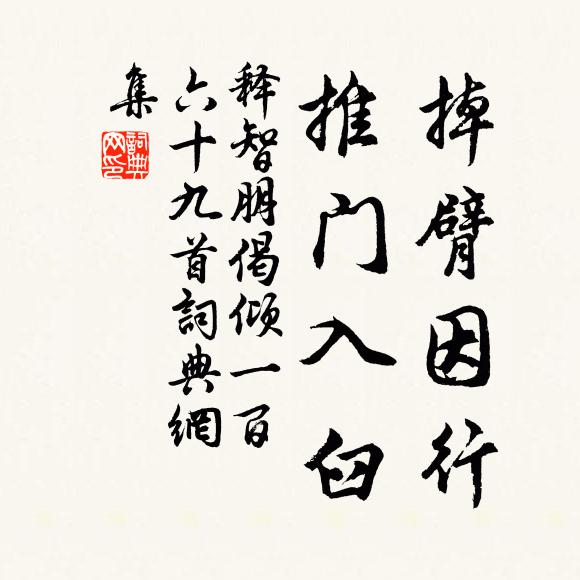 掉臂因行
推门入臼
释智朋偈倾一百
六十九首詞典網
集
詞典網印